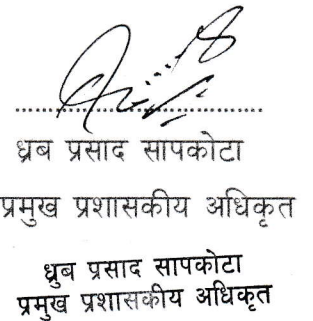 ध्रुब प्रसाद सापकोटा
प्रमुख प्रशासकीय अधिकृत
ध्रुब प्रसाद सापकोटा
प्रमुख प्रशासकीय अधिकृत